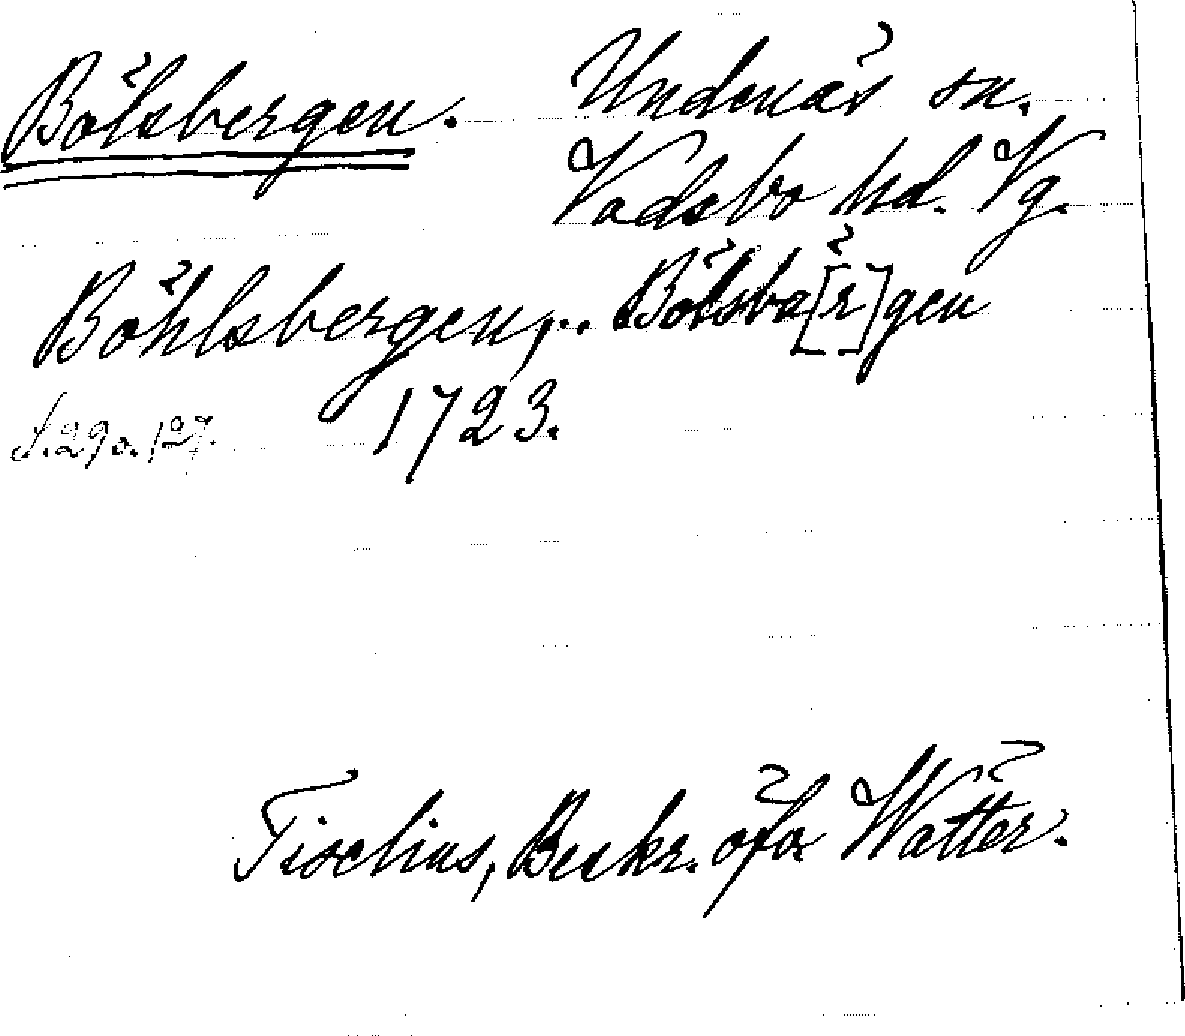 Bölsbergen. Undenäs sn.
Vadsbo hd. Vg.
Böhlsbergen, .. Bölsbä[r]gen
S. 29 o. 127. 1723.
Tiselius, Beskr. öfv. Wätter.